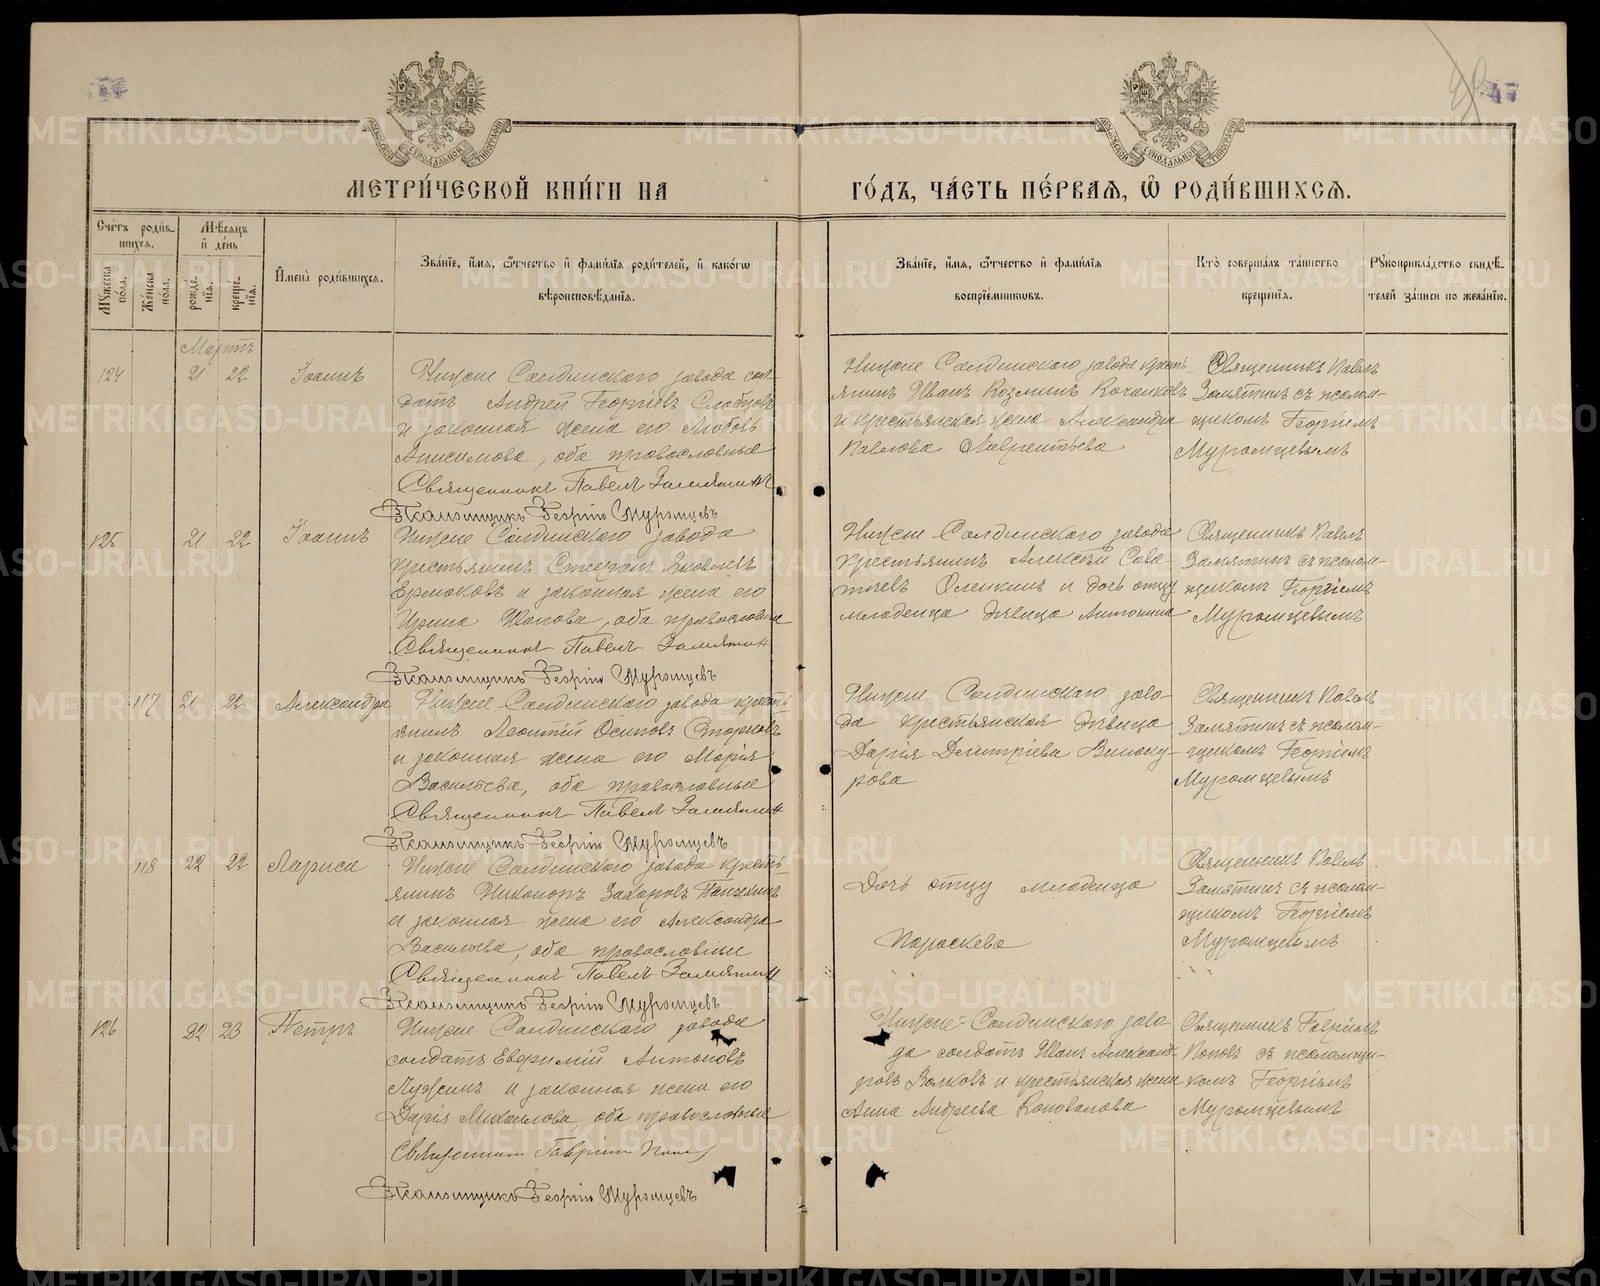 47
МЕТРИ́ЧЕСКОЙ КНИ́ГИ НА ГО́ДЪ, ЧА́СТЬ ПЕ́РВАѦ, Ѿ РОДИ́ВШИХСѦ.
Счетъ роди́вшихся.
Мѣсяцъ и де́нь
Имена̀ роди́вшихся.
Зва́нїе, и́мя, ѻ́тчество и фами́лїя роди́телей, и како́гѡ вѣроисповѣ́данїя.
Зва́нїе, и́мя, ѻ́тчество и фами́лїя воспрїе́мникѡвъ.
Кто̀ соверша́лъ та́инство креще́нїя.
Рукоприкла́дство свидѣ́телей за́писи по жела́нїю.
Му́жеска по́ла.
Же́нска по́ла.
рожде́нїя.
креще́нїя.
Мартъ
124 21 22 Іоаннъ
Нижне Салдинскаго завода сол-
датъ Андрей Георгіевъ Слобцовъ
и законная жена его Любовь
Анисимова, оба православные
Священникъ Павелъ Замятинъ
Псаломщикъ Георгій Муромцевъ
Нижне Салдинскаго завода кресть-
янинъ Иванъ Козминъ
и крестьянская жена Александра
Павлова Лаврентьева
Священникъ Павелъ
Замятинъ съ псалом-
щикомъ Георгіемъ
Муромцевымъ
125 21 22 Іоаннъ
Нижне Салдинскаго завода
крестьянинъ Стефанъ Яковлевъ
Ермаковъ и законная жена его
Ирина, оба православные
Священникъ Павелъ Замятинъ
Псаломщикъ Георгій Муромцевъ
Нижне Салдинскаго завода
крестьянинъ Алексѣй Сава-
тіевъ и дочь отцу
младенца дѣвица Антонина
Священникъ Павелъ
Замятинъ съ псалом-
щикомъ Георгіемъ
Муромцевымъ
117 21 22 Александра
Нижне Салдинскаго завода кресть-
янинъ Леонтій Осиповъ
и законная жена его Марія
Васильева, оба православные
Священникъ Павелъ Замятинъ
Псаломщикъ Георгій Муромцевъ
Нижне Салдинскаго заво-
да крестьянская дѣвица
Дарія Димитріева Виноку-
рова
Священникъ Павелъ
Замятинъ съ псалом-
щикомъ Георгіемъ
Муромцевымъ
118 22 22 Лариса
Нижне Салдинскаго завода кресть-
янинъ Никаноръ Захаровъ
и законная жена его Александра
Васильева, оба православные
Священникъ Павелъ Замятинъ
Псаломщикъ Георгій Муромцевъ
Дочь отцу младенца
Параскева
Священникъ Павелъ
Замятинъ съ псалом-
щикомъ Георгіемъ
Муромцевымъ
126 22 23 Петръ
Нижне Салдинскаго завода
солдатъ Евфимій Антоновъ
и законная жена его
Дарія Михаилова, оба православные
Священникъ Гавріилъ Поповъ
Псаломщикъ Георгій Муромцевъ
Нижне Салдинскаго заво-
да солдатъ Иванъ Александ-
ровъ Волковъ и крестьянская жена
Анна Андреева Коновалова
Священникъ Гавріилъ
Поповъ съ псаломщи-
комъ Георгіемъ
Муромцевымъ
METRIKI.GASO-URAL.RU